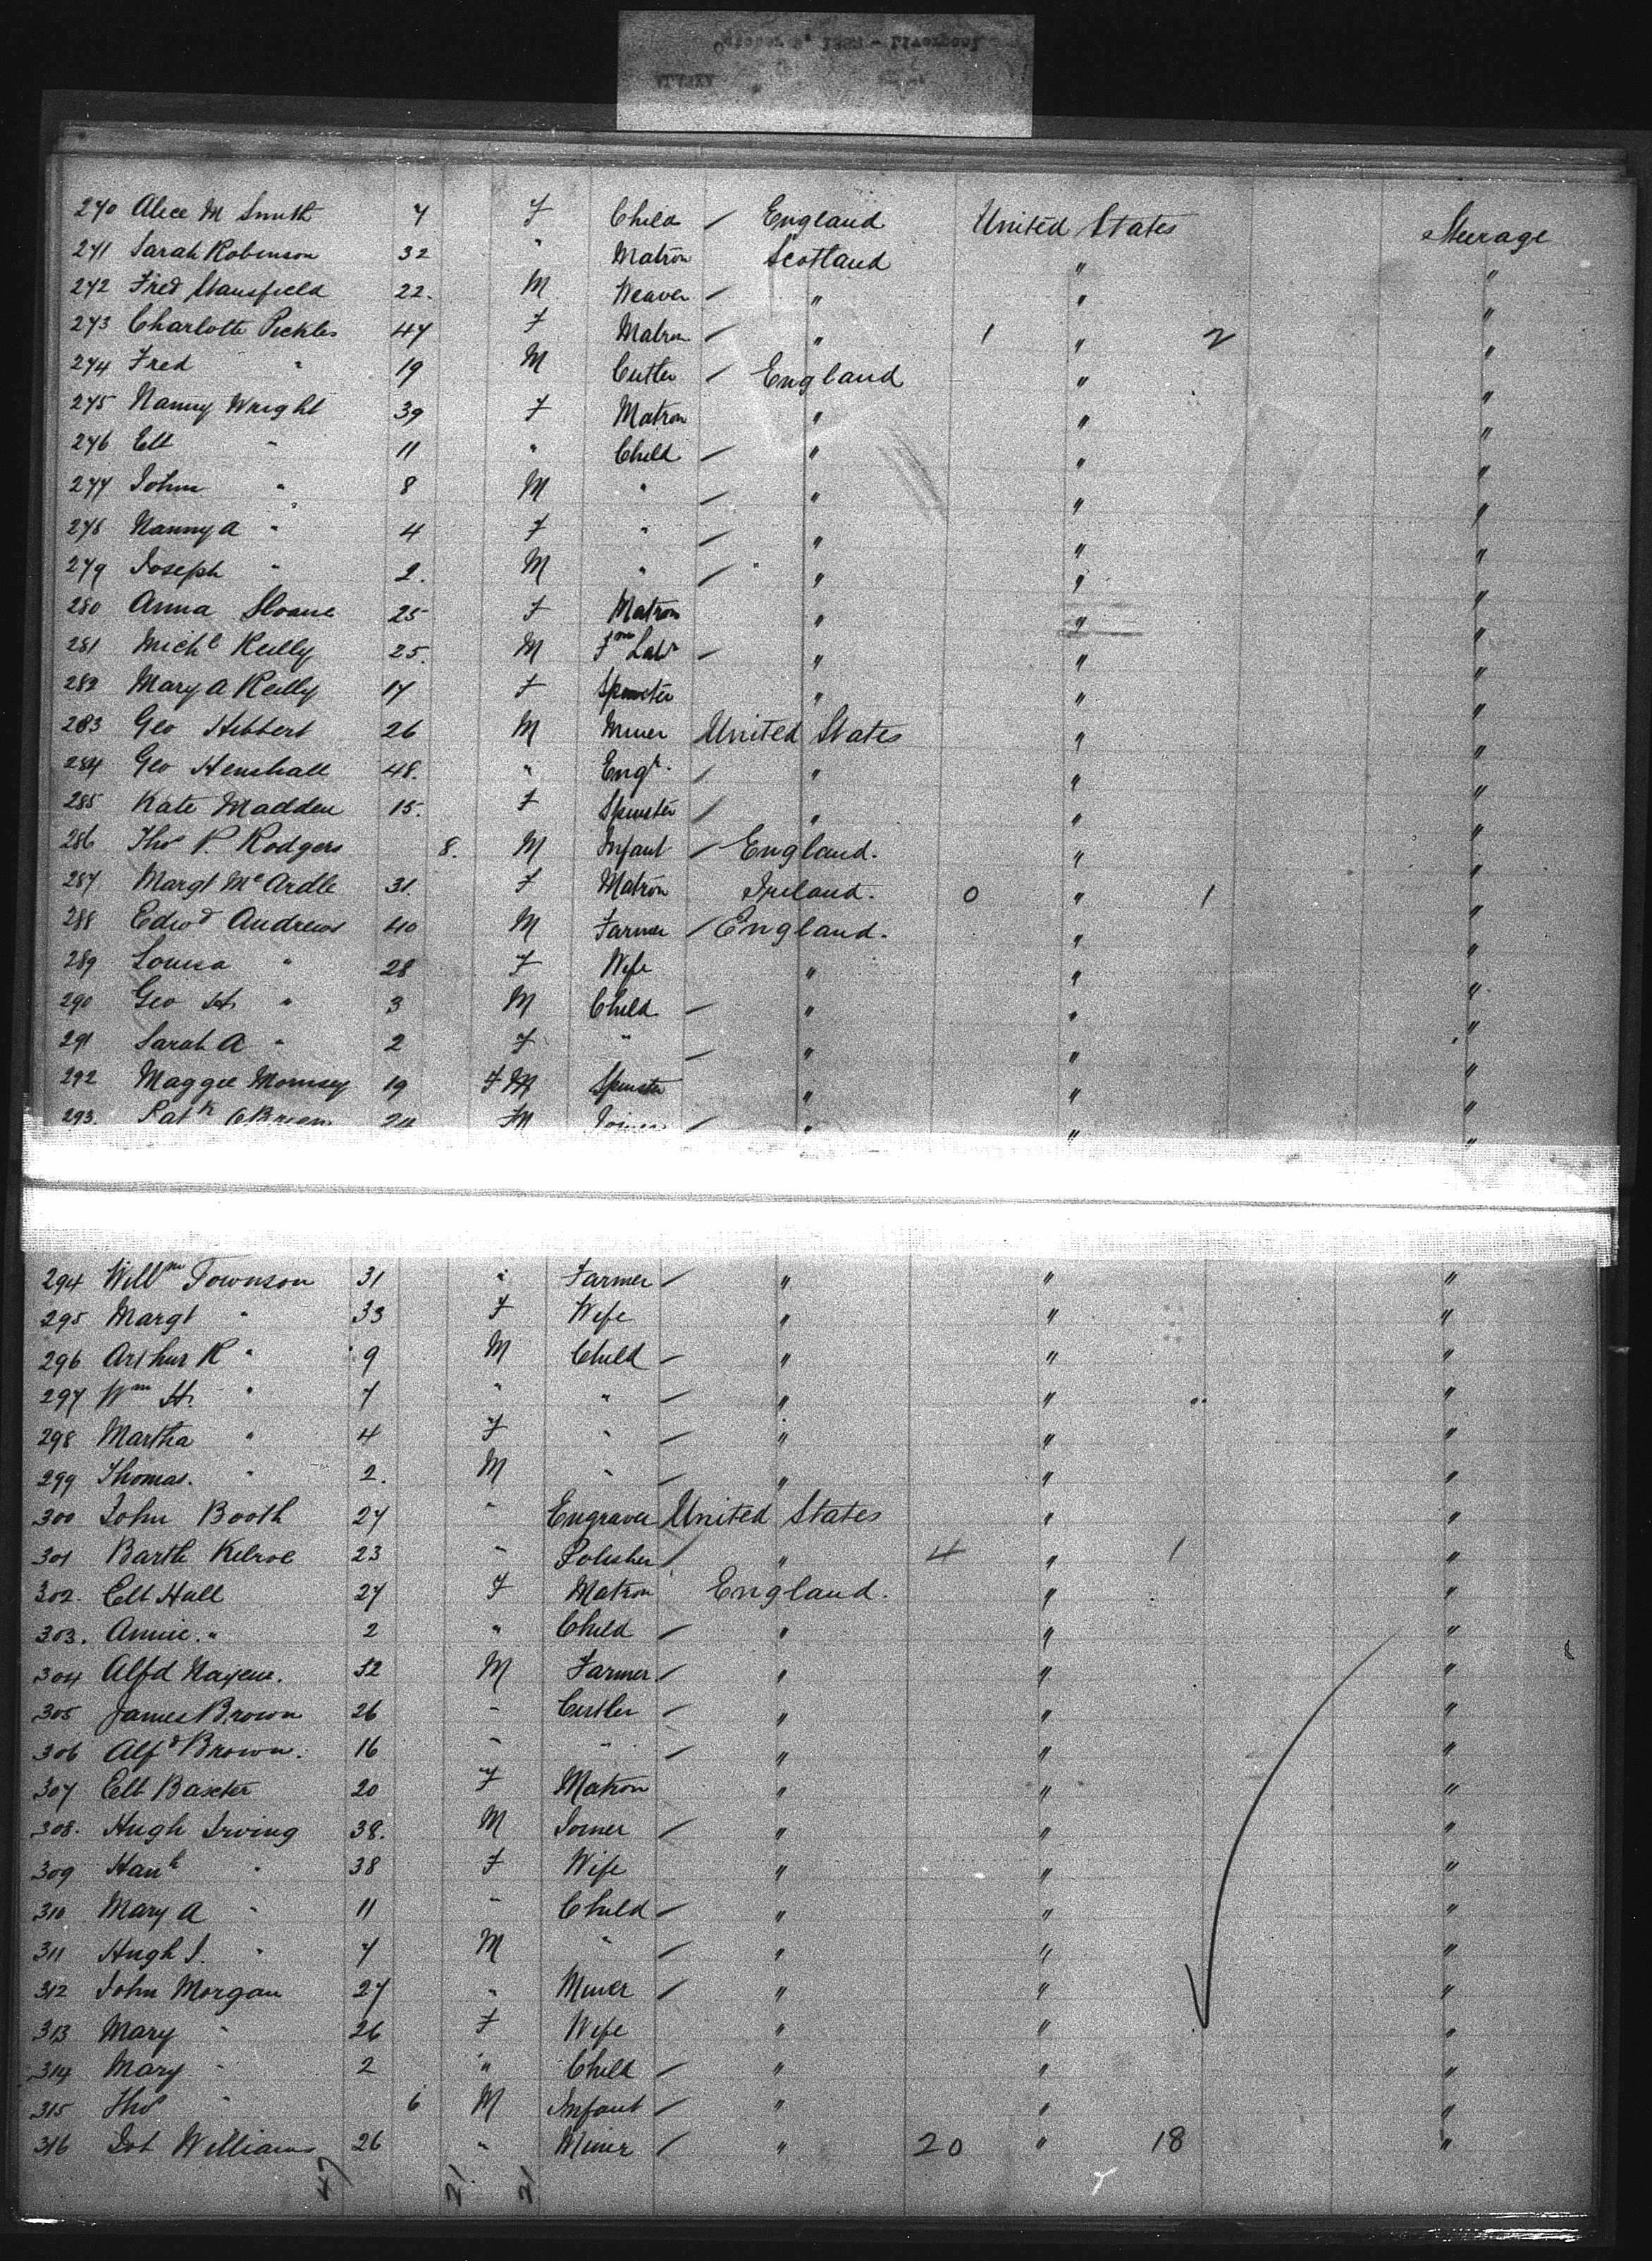 270 Alice M Smith 7 F Child / England United States Steerage
271 Sarah Robinson 32 " Matron Scotland " "
272 Fred Stansfield 22. M Weaver / " " "
273 Charlotte Pickles 47 F Matron / " 1 " 2 "
274 Fred " 19 M Cutler / England " "
275 Nanny Wright 39 F Matron " " "
276 Elt " 11 " Child / " " "
277 John " 8 M " / " " "
278 Nanny A " 4 F " / " " "
279 Joseph " 2. M " / " " "
280 Anna Sloane 25 F Matron " " "
281 Michl Reilly 25. M Fm Labr / " " "
282 Mary A Reilly 17 F Spinster " " "
283 Geo Hibbert 26 M Miner United States " "
284 Geo Henshall 48. " Engr. / " " "
285 Kate Madden 15. F Spinster / " " "
286 Thos P. Rodgers 8. M Infant / England. " "
287 Margt McArdle 31. F Matron Ireland. 0 " 1 "
288 Edwd Andrews 40 M Farmer / England. " "
289 Louisa " 28 F Wife " " "
290 Geo H. " 3 M Child / " " "
291 Sarah A " 2 F " / " " "
292 Maggie 19 F Spinster " " "
293. Patk O'Brien 24 M Joiner / " " "
294 Willm Townson 31 " Farmer / " " "
295 Margt " 33 F Wife " " "
296 Arthur R " 9 M Child / " " "
297 Wm H. " 7 " " / " " "
298 Martha " 4 F " / " " "
299 Thomas. " 2. M " / " " "
300 John Booth 27 " Engraver United States " "
301 Barth Kilroe 23 " Polisher / " 4 " 1 "
302. Elt Hall 27 F Matron England. " "
303. Annie. " 2 " Child / " " "
304 Alfd 52 M Farmer / " " "
305 James Brown 26 " Cutler / " " "
306 Alfd Brown. 16 " " / " " "
307 Elt Baxter 20 F Matron " " "
308. Hugh Irving 38. M Joiner / " " "
309 Hanh " 38 F Wife " " "
310 Mary A " 11 " Child / " " "
311 Hugh J. " 7 M " / " " "
312 John Morgan 27 " Miner / " " "
313 Mary " 26 F Wife " " "
314 Mary " 2 " Child / " " "
315 Thos " 6 M Infant / " " "
316 Williams 26 " Miner / " 20 " 18 "
47 21. 21